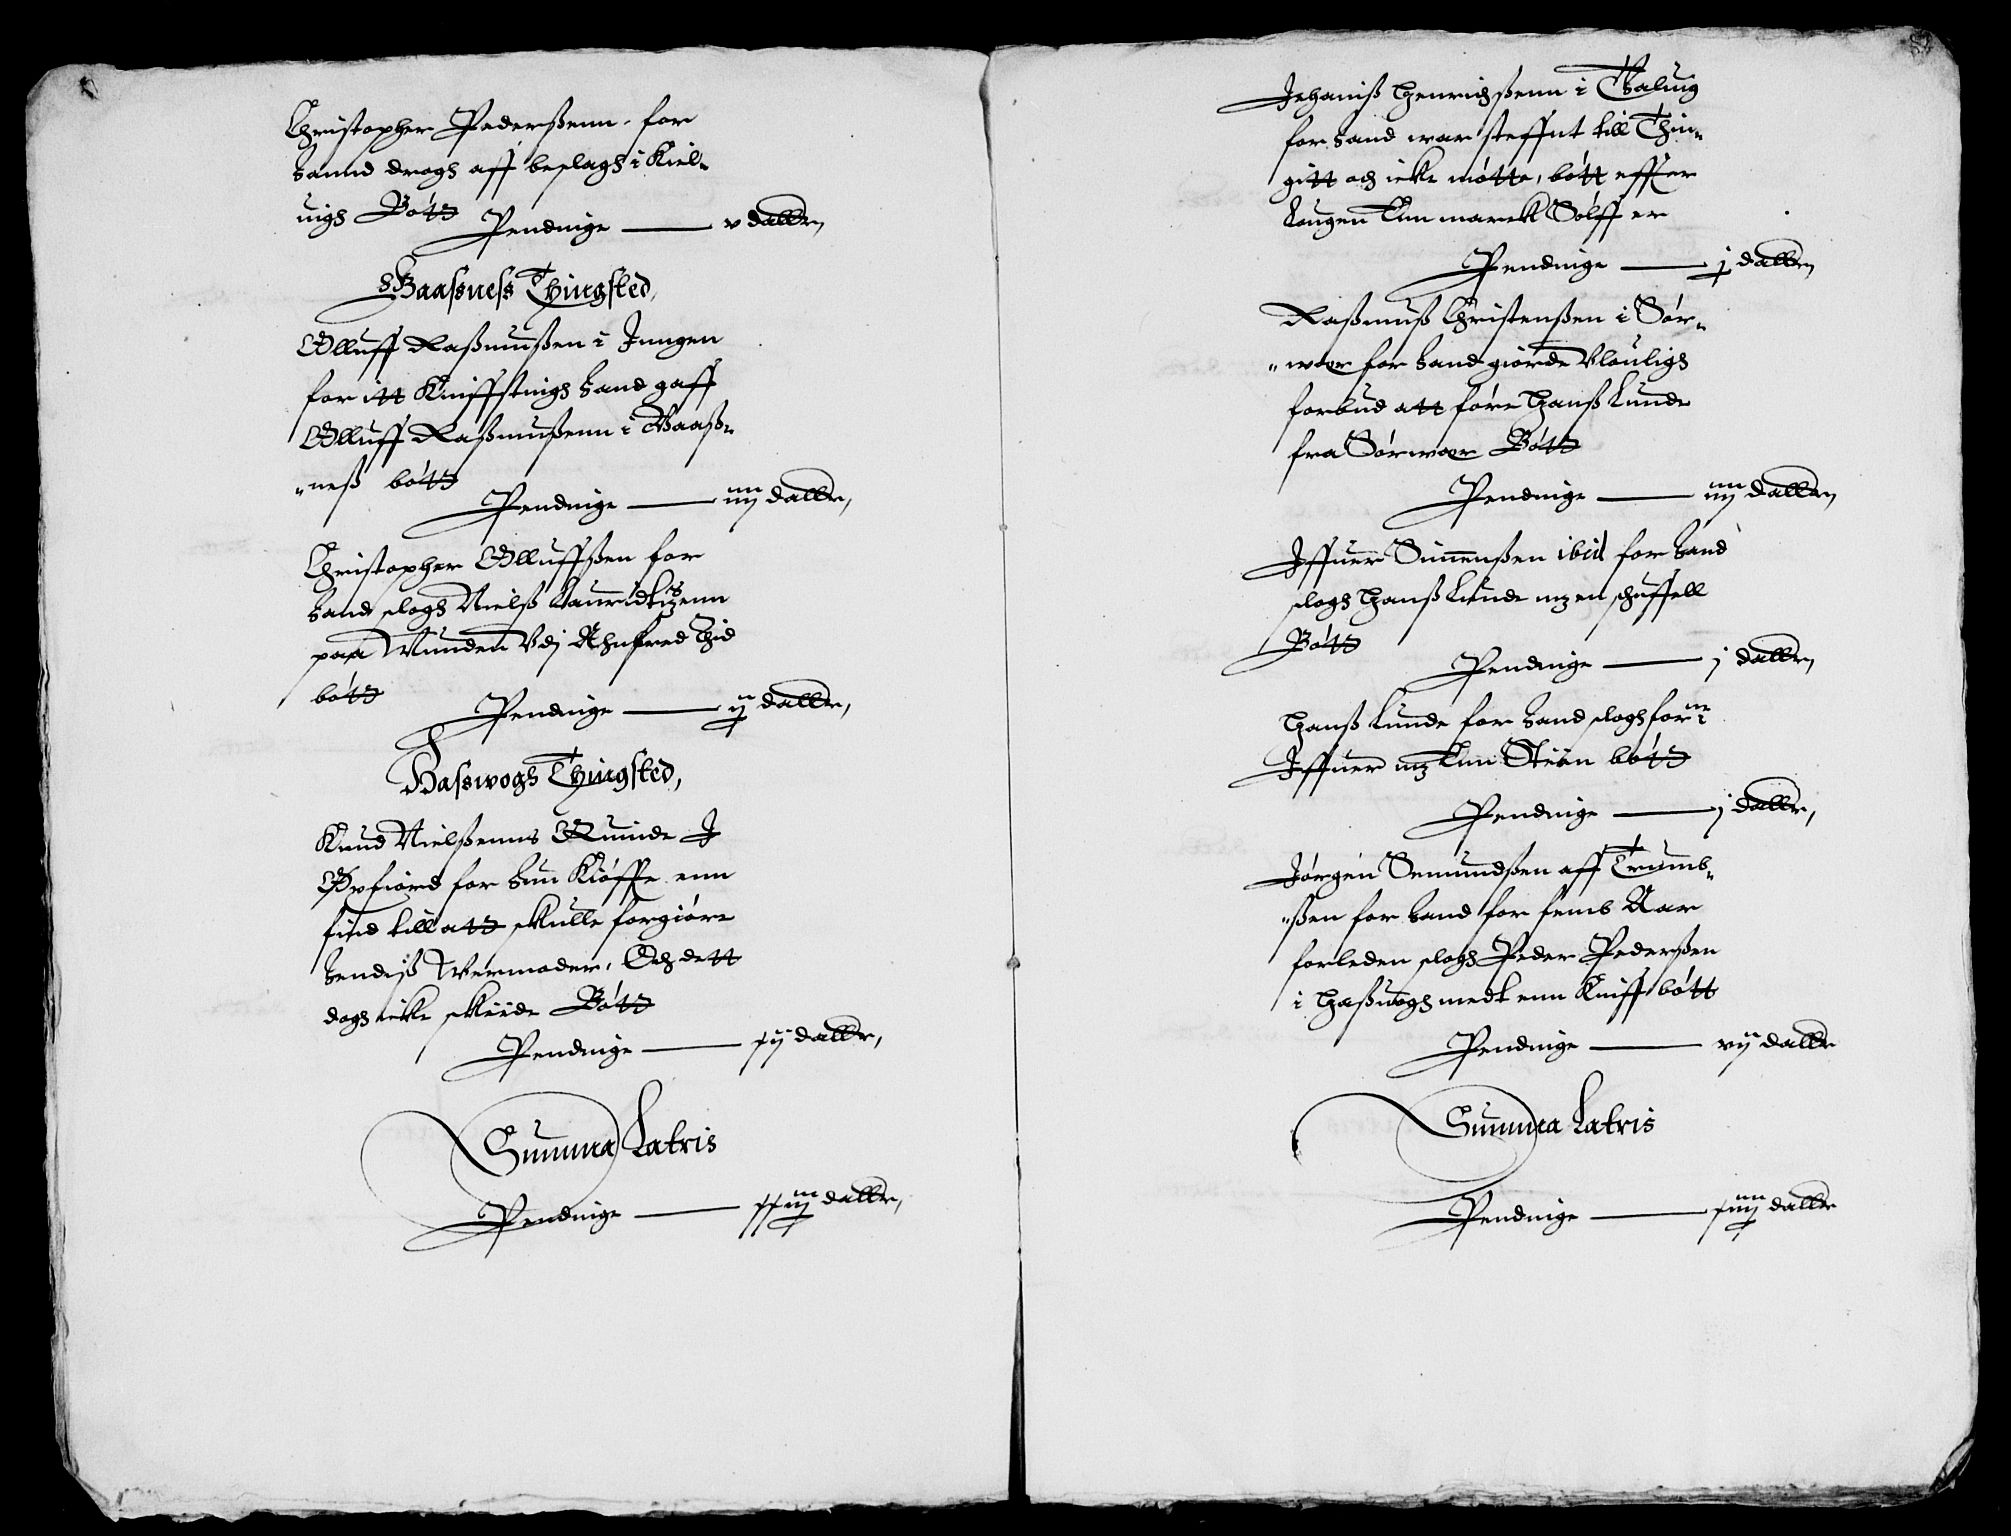 Christopher Pederßenn, for
hannd drogh aff beslagh i Kiel-
uigh Bótt
Pendinge —— v daller,
Baasness Thingsted,
Olluff Raßmußen i Jnngen
for itt Kniffstingh hand gaff
Olluff Raßmußenn i Baaß-
"neß bótt
Pendinge —— iiij daller,
Christopher Olluffßen for
hand slogh Nielß Lauridtzenn
paa Munden Vdj Ahnfred Thid
bótt
Pendinge —— ij daller,
Hasswogh Thingsted,
Knud Nielßenns Quinde J
Øxfiord for hun Kiøffte enn
find till att skulle forgióre
hendiß Wermoder, Och dett
dogh icke skiede Bótt
Pendinge —— xij daller,
Summa Latris
Pendinge —— xxiij daller,
Johaniß Henrichßenn i Galuig
for hand war steffnt till Thin-
gitt och icke mótte, bótt effter
Lougen Enn marck Sólff er
Pendinge —— j daller,
Raßmuß Christenßen i Sór-
"wer for hand giorde Vlouligh
forbud att fóre Hanß Lunde
fra Sórwer Bótt
Pendinge —— iiij daller,
Jffuer Simenßen ibid for hand
slogh Hanß Lunde mz en schuffell
Bótt
Pendinge —— j daller,
Hanß Lunde for hand slogh forne
Jffuer mz Enn Stien bótt
Pendinge —— j daller,
Jórgen Semundßen aff Trumb-
"ßen for hand for femb Aar
forleden slogh Peder Pederßen
i Haßuogh medt enn Kniff bótt
Pendinge —— vij daller
Summa Latris
Pendinge —— xiiij daller